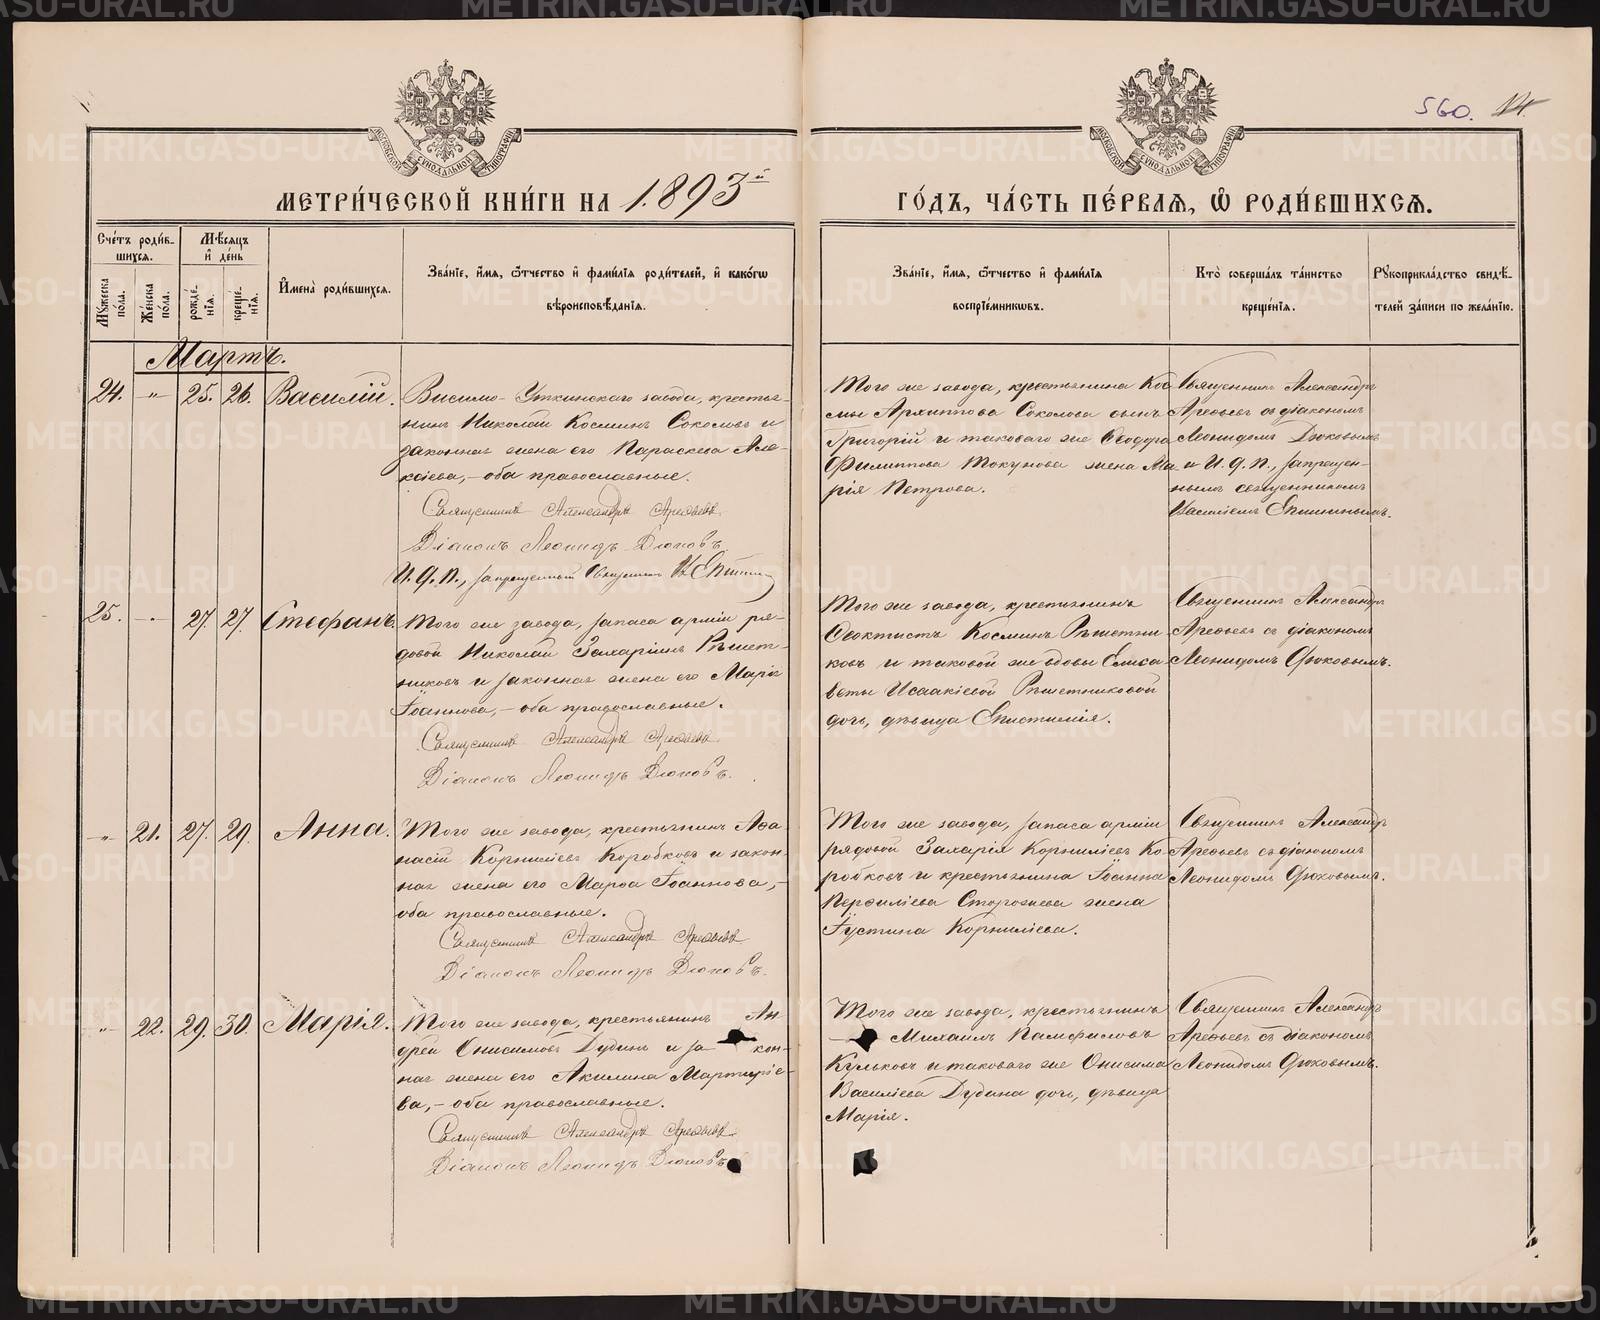 560. 14
МОСКОВСКОЙ СУНОДАЛЬНОЙ ТИПОГРАФІИ
МОСКОВСКОЙ СУНОДАЛЬНОЙ ТИПОГРАФІИ
МЕТРИ́ЧЕСКОЙ КНИ́ГИ НА 1893й
ГО́ДЪ, ЧА́СТЬ ПЕ́РВАѦ, Ѽ РОДИ́ВШИХСѦ.
Сче́тъ роди́в-
шихсѧ.
Мꙋ́жеска по́ла.
Же́нска по́ла.
Мѣ́сѧцъ
и҆ де́нь
рожде́-
нїѧ.
креще́-
нїѧ.
И҆мена̀ роди́вшихсѧ.
Зва́нїе, и҆́мѧ, ѻ҆́тчество и҆ фами́лїѧ роди́телей, и҆ како́гѡ
вѣроисповѣ́данїѧ.
Зва́нїе, и҆́мѧ, ѻ҆́тчество и҆ фами́лїѧ
воспрїе́мникѡвъ.
Кто̀ соверша́лъ та́инство
креще́нїѧ.
Рꙋкоприкла́дство свидѣ́-
телей за́писи по жела́нїю.
Мартъ.
24. „ 25. 26. Василій.
Висимо-Уткинскаго завода, крестья-
нинъ Николай Косминъ Соколовъ и
законная жена его Параскева Але-
ксіева, – оба православные.
Священникъ Александръ Арефьевъ
Діаконъ Леонидъ Дюковъ
И. д. п., запрещенный священникъ
Того же завода, крестьянина Кос-
мы Архиппова Соколова сынъ
Григорій и таковаго же Ѳеодора
Филиппова Токунова жена Ма-
рія Петрова.
Священникъ Александръ
Арефьевъ съ діакономъ
Леонидомъ Дюковымъ
и И. д. п., запрещен-
нымъ священникомъ
Василіемъ
25. „ 27. 27. Стефанъ.
Того же завода, запаса арміи ря-
довой Николай Захаріинъ Рѣшет-
никовъ и законная жена его Марія
Іоаннова, – оба православные.
Священникъ Александръ Арефьевъ
Діаконъ Леонидъ Дюковъ.
Того же завода, крестьянинъ
Ѳеоктистъ Косминъ Рѣшетни-
ковъ и таковой же вдовы Елиса-
веты Исаакіевой Рѣшетниковой
дочь, дѣвица Епистимія.
Священникъ Александръ
Арефьевъ съ діакономъ
Леонидомъ Дюковымъ.
„ 21. 27. 29. Анна.
Того же завода, крестьянинъ Аѳа-
насій Корниліевъ Коробковъ и закон-
ная жена его Марѳа Іоаннова, –
оба православные.
Священникъ Александръ Арефьевъ
Діаконъ Леонидъ Дюковъ.
Того же завода, запаса арміи
рядовой Захарія Корниліевъ Ко-
робковъ и крестьянина Іоанна
Перфиліева Сторожева жена
Іустина Корниліева.
Священникъ Александръ
Арефьевъ съ діакономъ
Леонидомъ Дюковымъ.
„ 22. 29. 30. Марія.
Того же завода, крестьянинъ Ан-
дрей Онисимовъ Дубинъ и за- кон-
ная жена его Акилина Мартиріе-
ва, – оба православные.
Священникъ Александръ Арефьевъ
Діаконъ Леонидъ Дюковъ
Того же завода, крестьянинъ
Михаилъ Памфиловъ
Кульковъ и таковаго же Онисима
Василіева Дубина дочь, дѣвица
Марія.
Священникъ Александръ
Арефьевъ съ діакономъ
Леонидомъ Дюковымъ.
METRIKI.GASO-URAL.RU